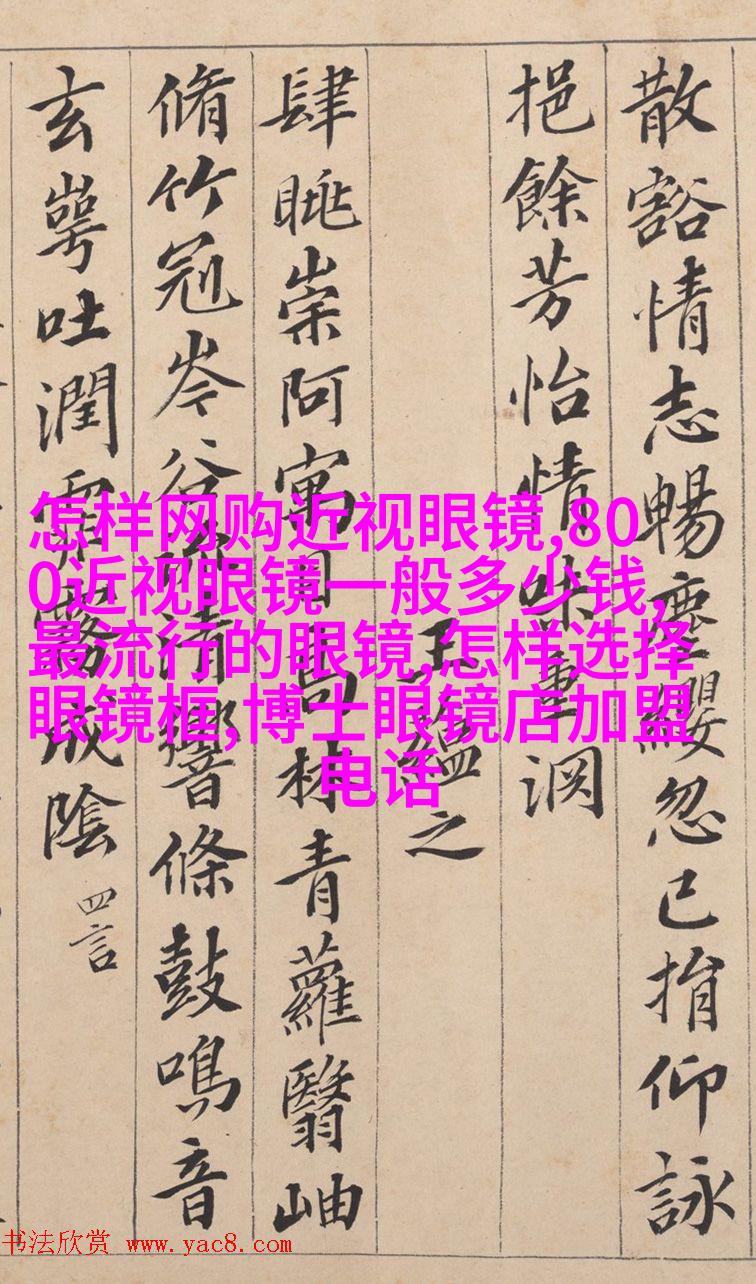 散豁情志暢塵纓忽已捐仰詠
挹餘芳怡情味重渊
王蘊之
肆眺崇阿寓目高林青蘿翳岫
脩竹冠岑谷流清響條鼓鳴音
玄崿吐潤霏霧成陰 四言
怎样网购近视眼镜,80
0近视眼镜一般多少钱,
最流行的眼镜,怎样选择
眼镜框,博士眼镜店加盟
电话
书法欣赏 www.yac8.com